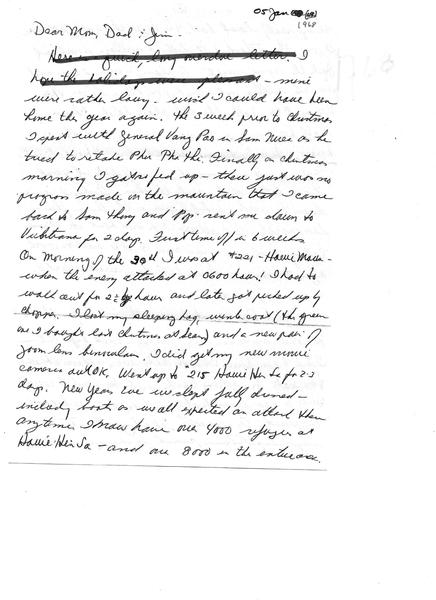 05 Jan (68)
1968
Dear Mom, Dad & Jim.
Here is a quick, long overdue letter. I
hope the holidays were pleasant - mine
were rather lousy. wish I could have been
home this year again. The 3 week prior to Christmas
I spent with General Vang Pao in Sam Neua as he
tried to retake Phu Pha Thi. Finally on Christmas
morning I got so fed up - there just was no
progress made on the mountain that I came
back to Sam Thong and Pop sent me down to
Vientiane for 2 days. First time off in 6 weeks.
On Morning of the 30th I was at #221 - Houei
when the enemy attacked at 0600 hours! I had to
walk out for 2½ hours and later got picked up by
chopper. I lost my sleeping bag, winter coat (the green
one I bought last Christmas at Sears) and a new pair of
zoom lens binoculars. I did get my new movie
camera out OK. Went up to #215 Houei Hin Sa for 2-3
days. New Years Eve we slept fully dressed -
including boots as we all expected an attack there
anytime. I now have over 4000 refugees at
Houei Hin Sa - and over 8000 in the entire area.